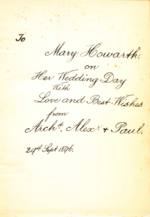 To
Mary Howarth
on
Her Wedding Day
With
Love and Best Wishes
from
Archd, Alexr & Paul.
29th Sept 1896.